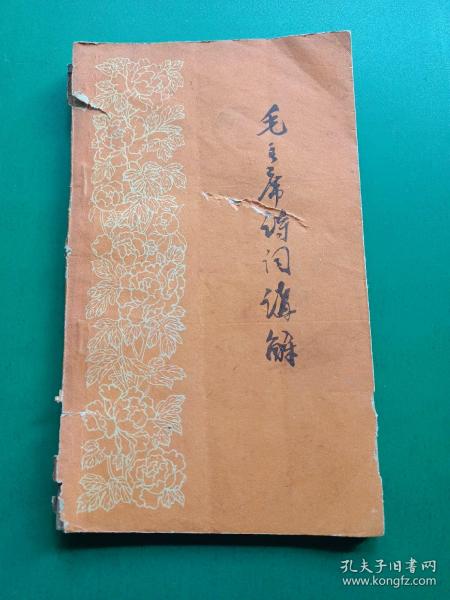 毛主席诗词讲解
孔夫子旧书网
www.kongfz.com